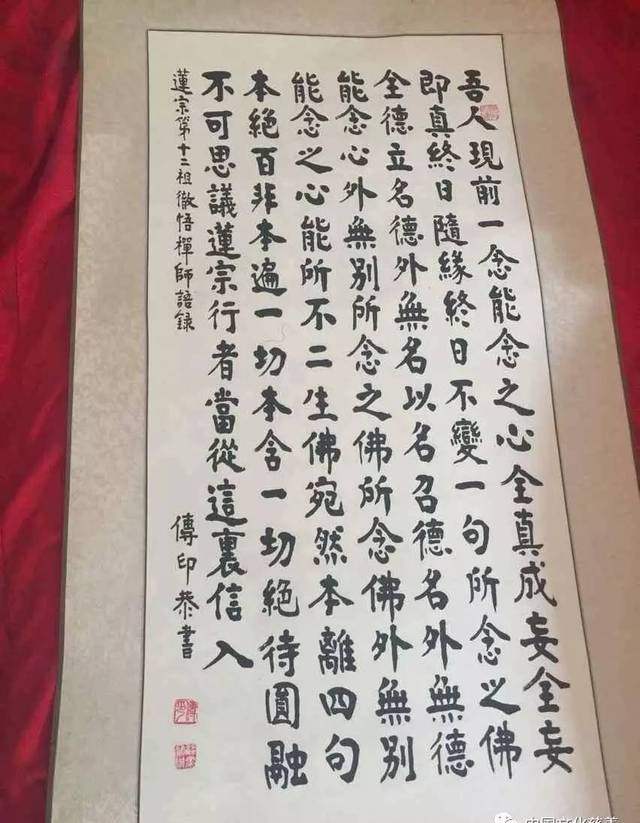 吾人現前一念能念之心全真成妄全妄
即真終日隨緣終日不變一句所念之佛
全德立名德外無名以名召德名外無德
能念心外無別所念之佛所念佛外無別
能念之心能所不二生佛宛然本離四句
本絕百非本遍一切本含一切絕待圓融
不可思議蓮宗行者當從這裏信入
蓮宗第十二祖徹悟禪師語錄
傳印恭書